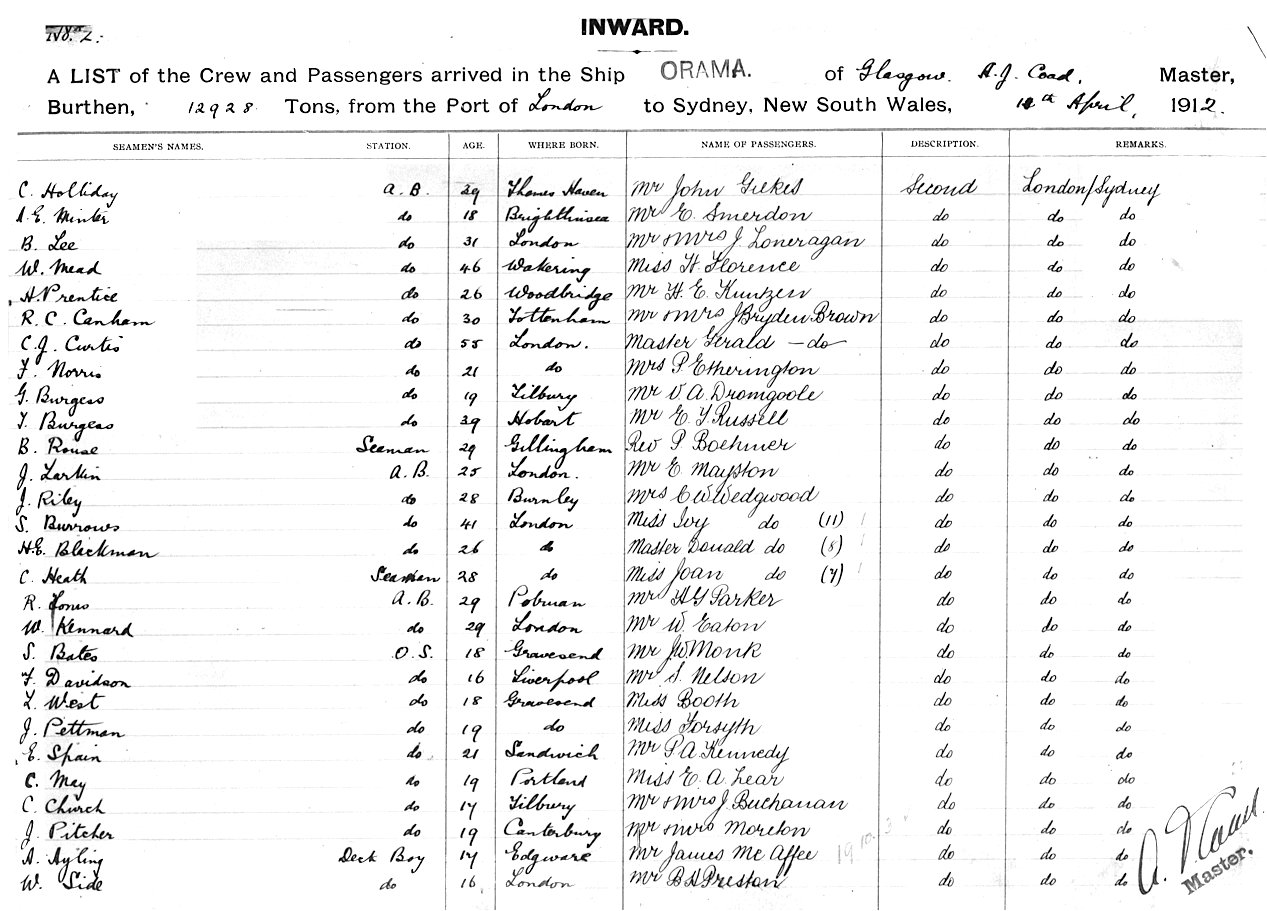 No. 2.
INWARD.
A LIST of the Crew and Passengers arrived in the Ship ORAMA. of Glasgow. A. J. Coad, Master,
Burthen, 12928 Tons, from the Port of London to Sydney, New South Wales, April, 1912.
SEAMEN'S NAMES. STATION. AGE. WHERE BORN. NAME OF PASSENGERS. DESCRIPTION. REMARKS.
C. Holliday A.B. 29 Thames Haven Mr John Gilkes Second London/Sydney
A.E. Minter do 18 Brightlinsea Mr E. Smerdon do do do
B. Lee do 31 London Mr & Mrs J. Loneragan do do do
W. Mead do 46 Wakering Miss H. Florence do do do
A. Prentice do 26 Woodbridge Mr H. E. Kuntzen do do do
R. C. Canham do 30 Tottenham Mr & Mrs J Bryden Brown do do do
C.J. Curtis do 55 London. Master Gerald — do — do do do
F. Norris do 21 do Mrs P Etherington do do do
G. Burgess do 19 Tilbury Mr V. A. Dromgoole do do do
T. Burgess do 39 Hobart Mr E. T. Russell do do do
B. Rouse Seaman 29 Gillingham Rev P Boehmer do do do
J. Larkin A.B. 25 London. Mr E. Mayston do do do
J. Riley do 28 Burnley Mrs C W Wedgwood do do do
S. Burrows do 41 London Miss Ivy do (11) do do do
H.E. Blackman do 26 do Master Donald do (8) do do do
C. Heath Seaman 28 do Miss Joan do (7) do do do
R. Jones A.B. 29 Mr H G Parker do do do
W. Kennard do 29 London Mr W. Eaton do do do
S. Bates O.S. 18 Gravesend Mr J W Monk do do do
F. Davidson do 16 Liverpool Mr S. Nelson do do do
L. West do 18 Gravesend Miss Booth do do do
J. Pettman do 19 do Miss Forsyth do do do
E. Spain do 21 Sandwich Mr P. A. Kennedy do do do
C. May do 19 Portland Miss E. A. Lear do do do
C. Church do 17 Tilbury Mr & Mrs J. Buchanan do do do
J. Pitcher do 19 Canterbury Mr & Mrs Moreton do do do
A. Ayling Deck Boy 17 Edgware Mr James Mc Affee do do do
W. Side do 16 London Mr B H Preston do do do
Master.